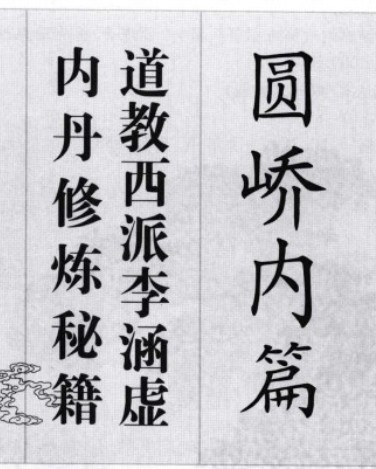 圆峤内篇
道教西派李涵虚
内丹修炼秘籍